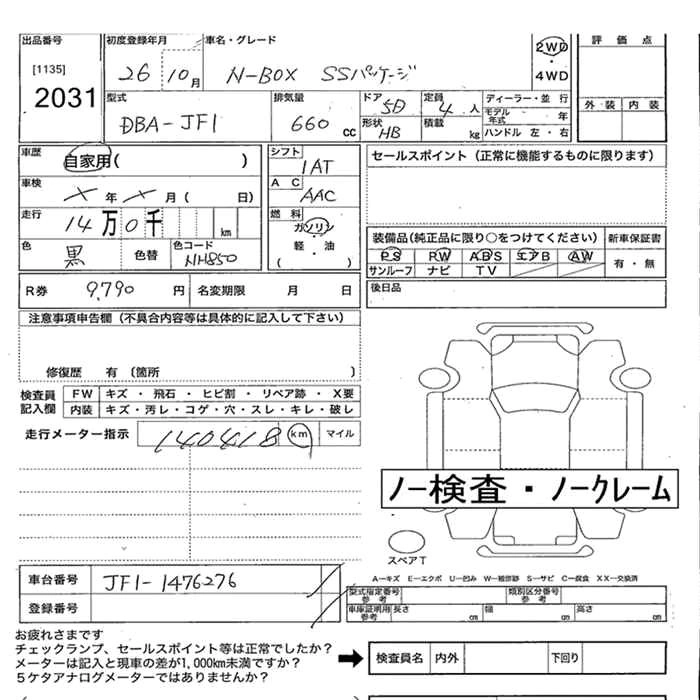 出品番号 初度登録年月 車名・グレード 2WD ・ 4WD 評 価 点
[1135] 26 10月 N-BOX SSパッケージ
2031
型式 排気量 ドア 5D 定員 4人 ディーラー・並 行 外 装 内 装
DBA-JF1 660 cc 形状 HB 積載 kg モデル年式 年
ハンドル 左・右
車歴 自家用( ) シフト 1AT セールスポイント(正常に機能するものに限ります)
車検 × 年 × 月( 日) A C AAC
走行 14万0千 km 燃 料 ガソリン
軽・油
( )
色 黒 色替 色コード NH850
装備品(純正品に限り○をつけてください) 新車保証書
PS PW ABS エアB AW 有・無
サンルーフ ナビ TV
R券 9,790 円 名変期限 月 日 後日品
注意事項申告欄(不具合内容等は具体的に記入して下さい)
修復歴 有 〔箇所 〕
検査員記入欄 FW キズ ・ 飛石 ・ ヒビ割 ・ リペア跡 ・ X要
内装 キズ・汚レ・コゲ・穴・スレ・キレ・破レ
走行メーター指示 140418 km マイル
ノー検査・ノークレーム
スペアT
A－キズ E－エクボ U－凹み W－補修跡 S－サビ C－腐食 XX－交換済
車台番号 JF1-1476276 型式指定番号 参考 類別区分番号 参考
登録番号 車庫証明用 参考 長さ cm 幅 cm 高さ cm
お疲れさまです
チェックランプ、セールスポイント等は正常でしたか?
メーターは記入と現車の差が1,000km未満ですか?
5ケタアナログメーターではありませんか?
検査員名 内外 下回り